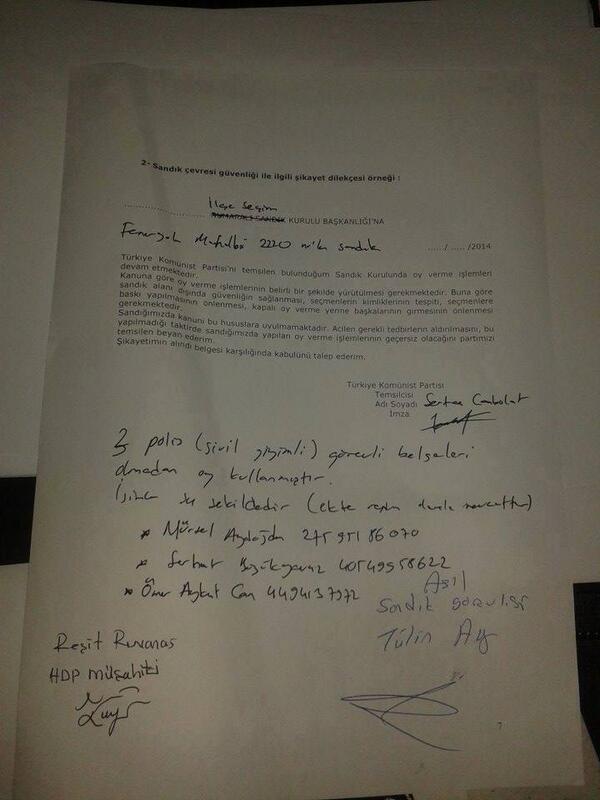 2- Sandık çevresi güvenliği ile ilgili şikayet dilekçesi örneği :
İlçe Seçim
........................ NUMARALI SANDIK KURULU BAŞKANLIĞI'NA
2220 sandık
..... / ..... /2014
Türkiye Komünist Partisi'ni temsilen bulunduğum Sandık Kurulunda oy verme işlemleri
devam etmektedir.
Kanuna göre oy verme işlemlerinin belirli bir şekilde yürütülmesi gerekmektedir. Buna göre
sandık alanı dışında güvenliğin sağlanması, seçmenlerin kimliklerinin tespiti, seçmenlere
baskı yapılmasının önlenmesi, kapalı oy verme yerine başkalarının girmesinin önlenmesi
gerekmektedir.
Sandığımızda kanuni bu hususlara uyulmamaktadır. Acilen gerekli tedbirlerin aldınılmasını, bu
yapılmadığı taktirde sandığımızda yapılan oy verme işlemlerinin geçersiz olacağını partimizi
temsilen beyan ederim.
Şikayetimin alındı belgesi karşılığında kabulünü talep ederim.
Türkiye Komünist Partisi
Temsilcisi
Adı Soyadı Sertan Canbolat
İmza
3 polis (sivil giyimli) görevli belgeleri
olmadan oy kullanmıştır.
şu şekildedir (ekte resim mevcuttur)
* Mürsel Aydoğdu 27595186070
* Serhat 40549958622
* Ömer Aykut Can 4494137972
Asil
Sandık görevlisi
Tülin Ay
Reşit
HDP Müşahiti